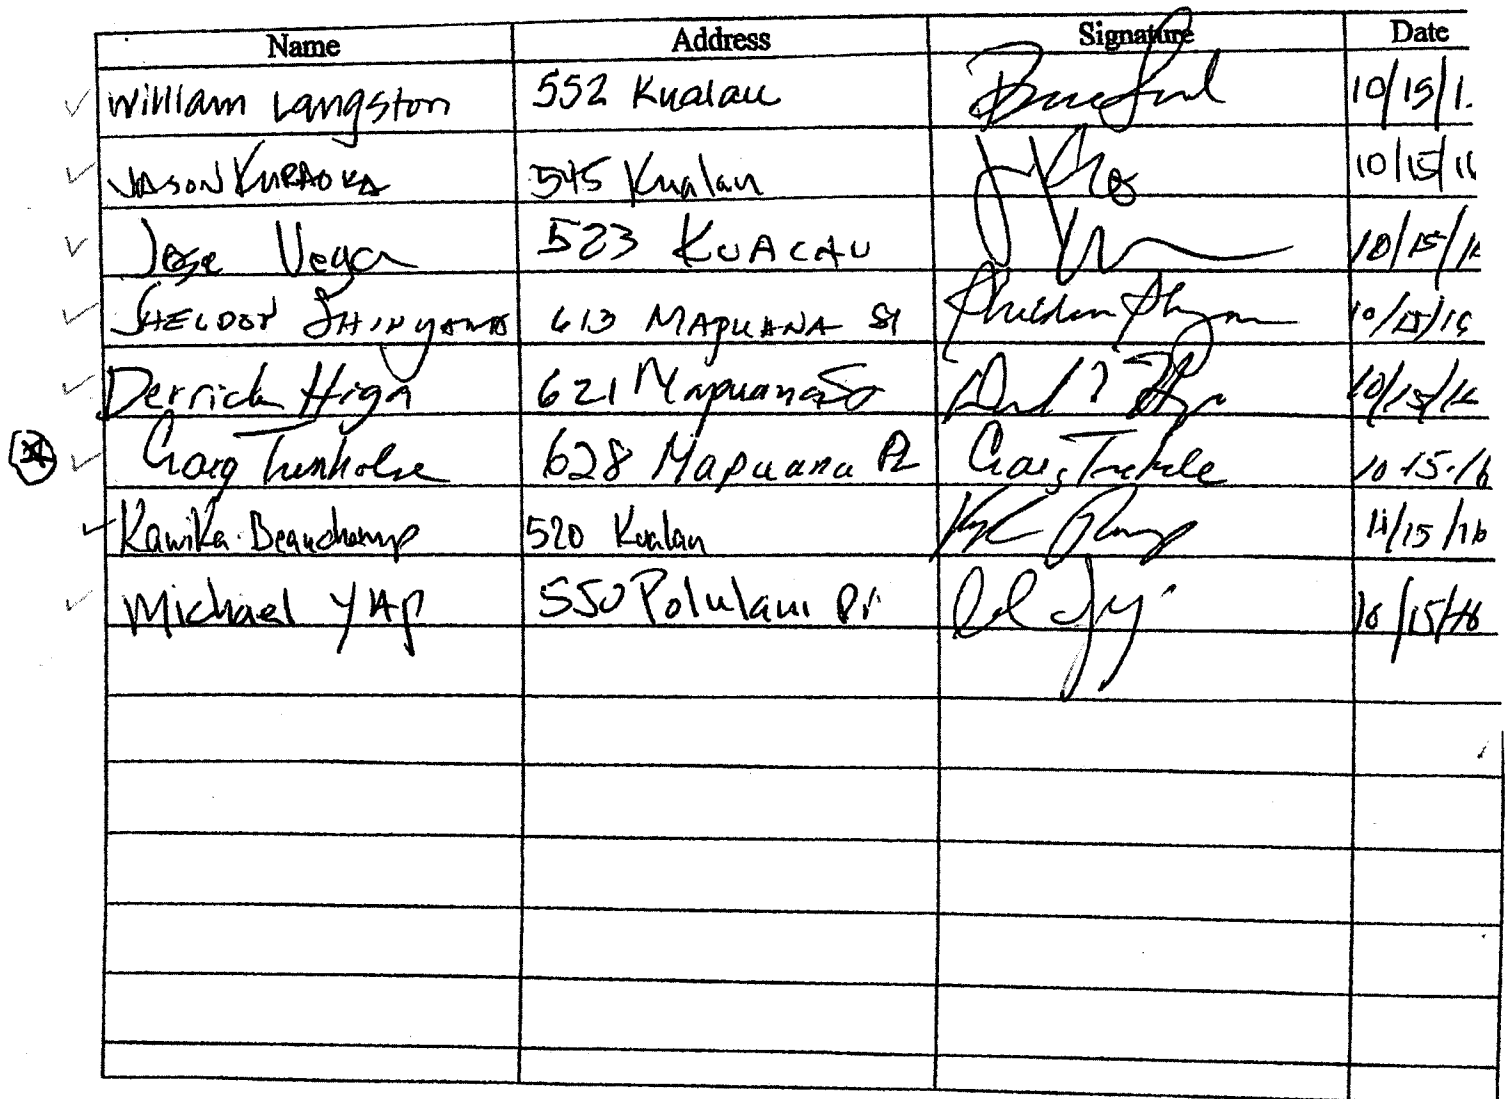 Name Address Signature Date
William Langston 552 Kualau 10/15/1
Jason Kuraoka 545 Kualau 10/15/16
Jose Vega 523 KUALAU 10/15/16
SHELDON SHINYAMA 613 MAPUANA St 10/15/16
Derrick Higa 621 Mapuana 10/15/16
Craig Trenholme 628 Mapuana Pl 10-15-16
Kawika Beauchamp 520 Kualau 11/15/16
Michael YAP 550 Polulani Dr 10/15/16